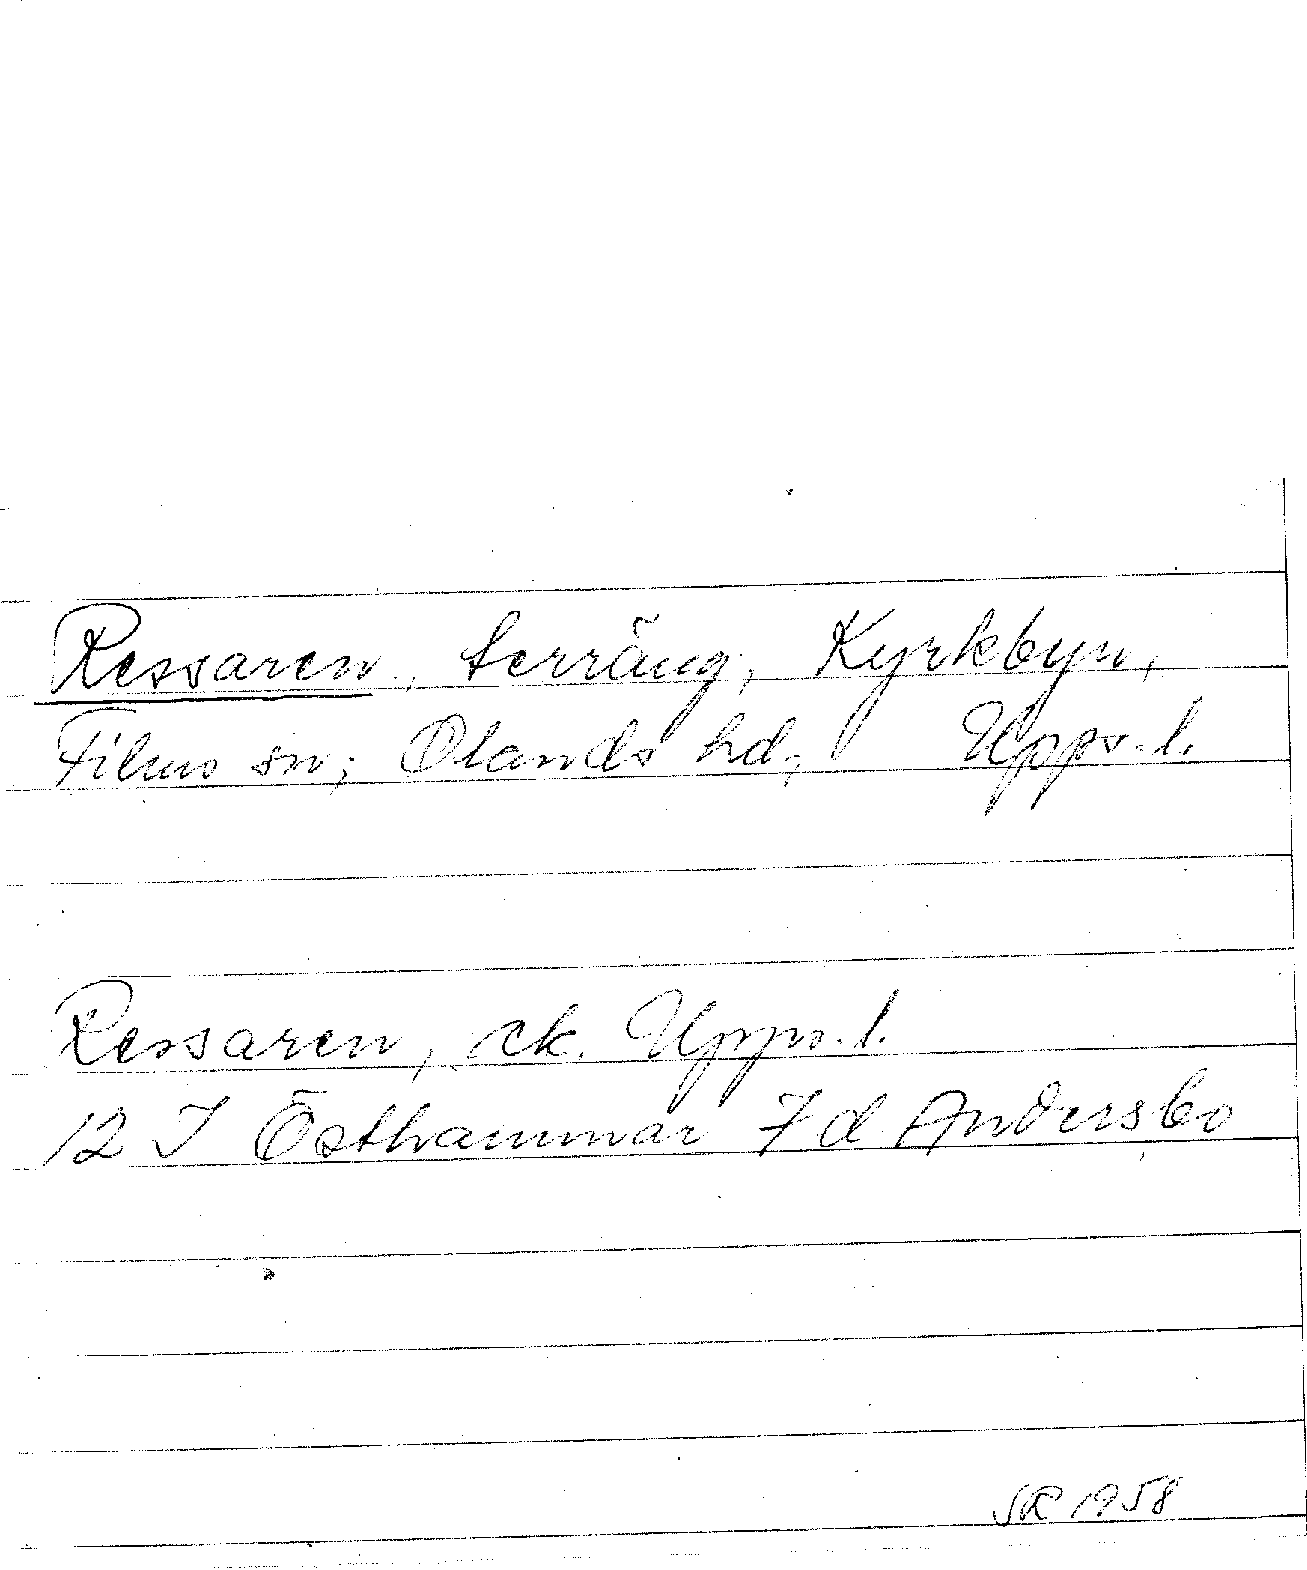 Ressaren, terräng, Kyrkbyn,
Films sn; Olands hd; Upps. l.
Ressaren, ek. Upps. l.
12 I Östhammar 7 d Andersbo
SR 1958